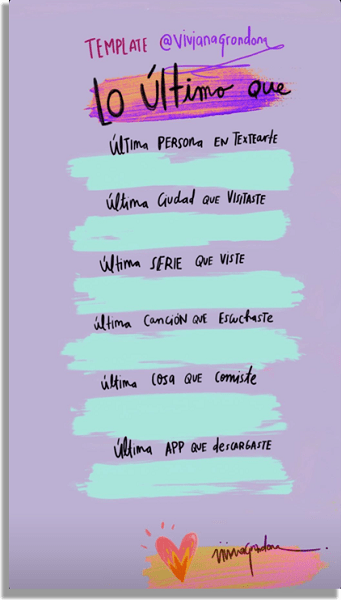 TEMPLATE @VivianaGrondona
Lo Último que
ÚLTIMA PERSONA EN TEXTEARTE
Última Ciudad QUE VISITASTE
Última SERIE QUE VISTE
última CANCIÓN QUE EScuchaSTE
última COSA QUE COMISTE
Última APP QUE desCARGASTE
vivianagrondona